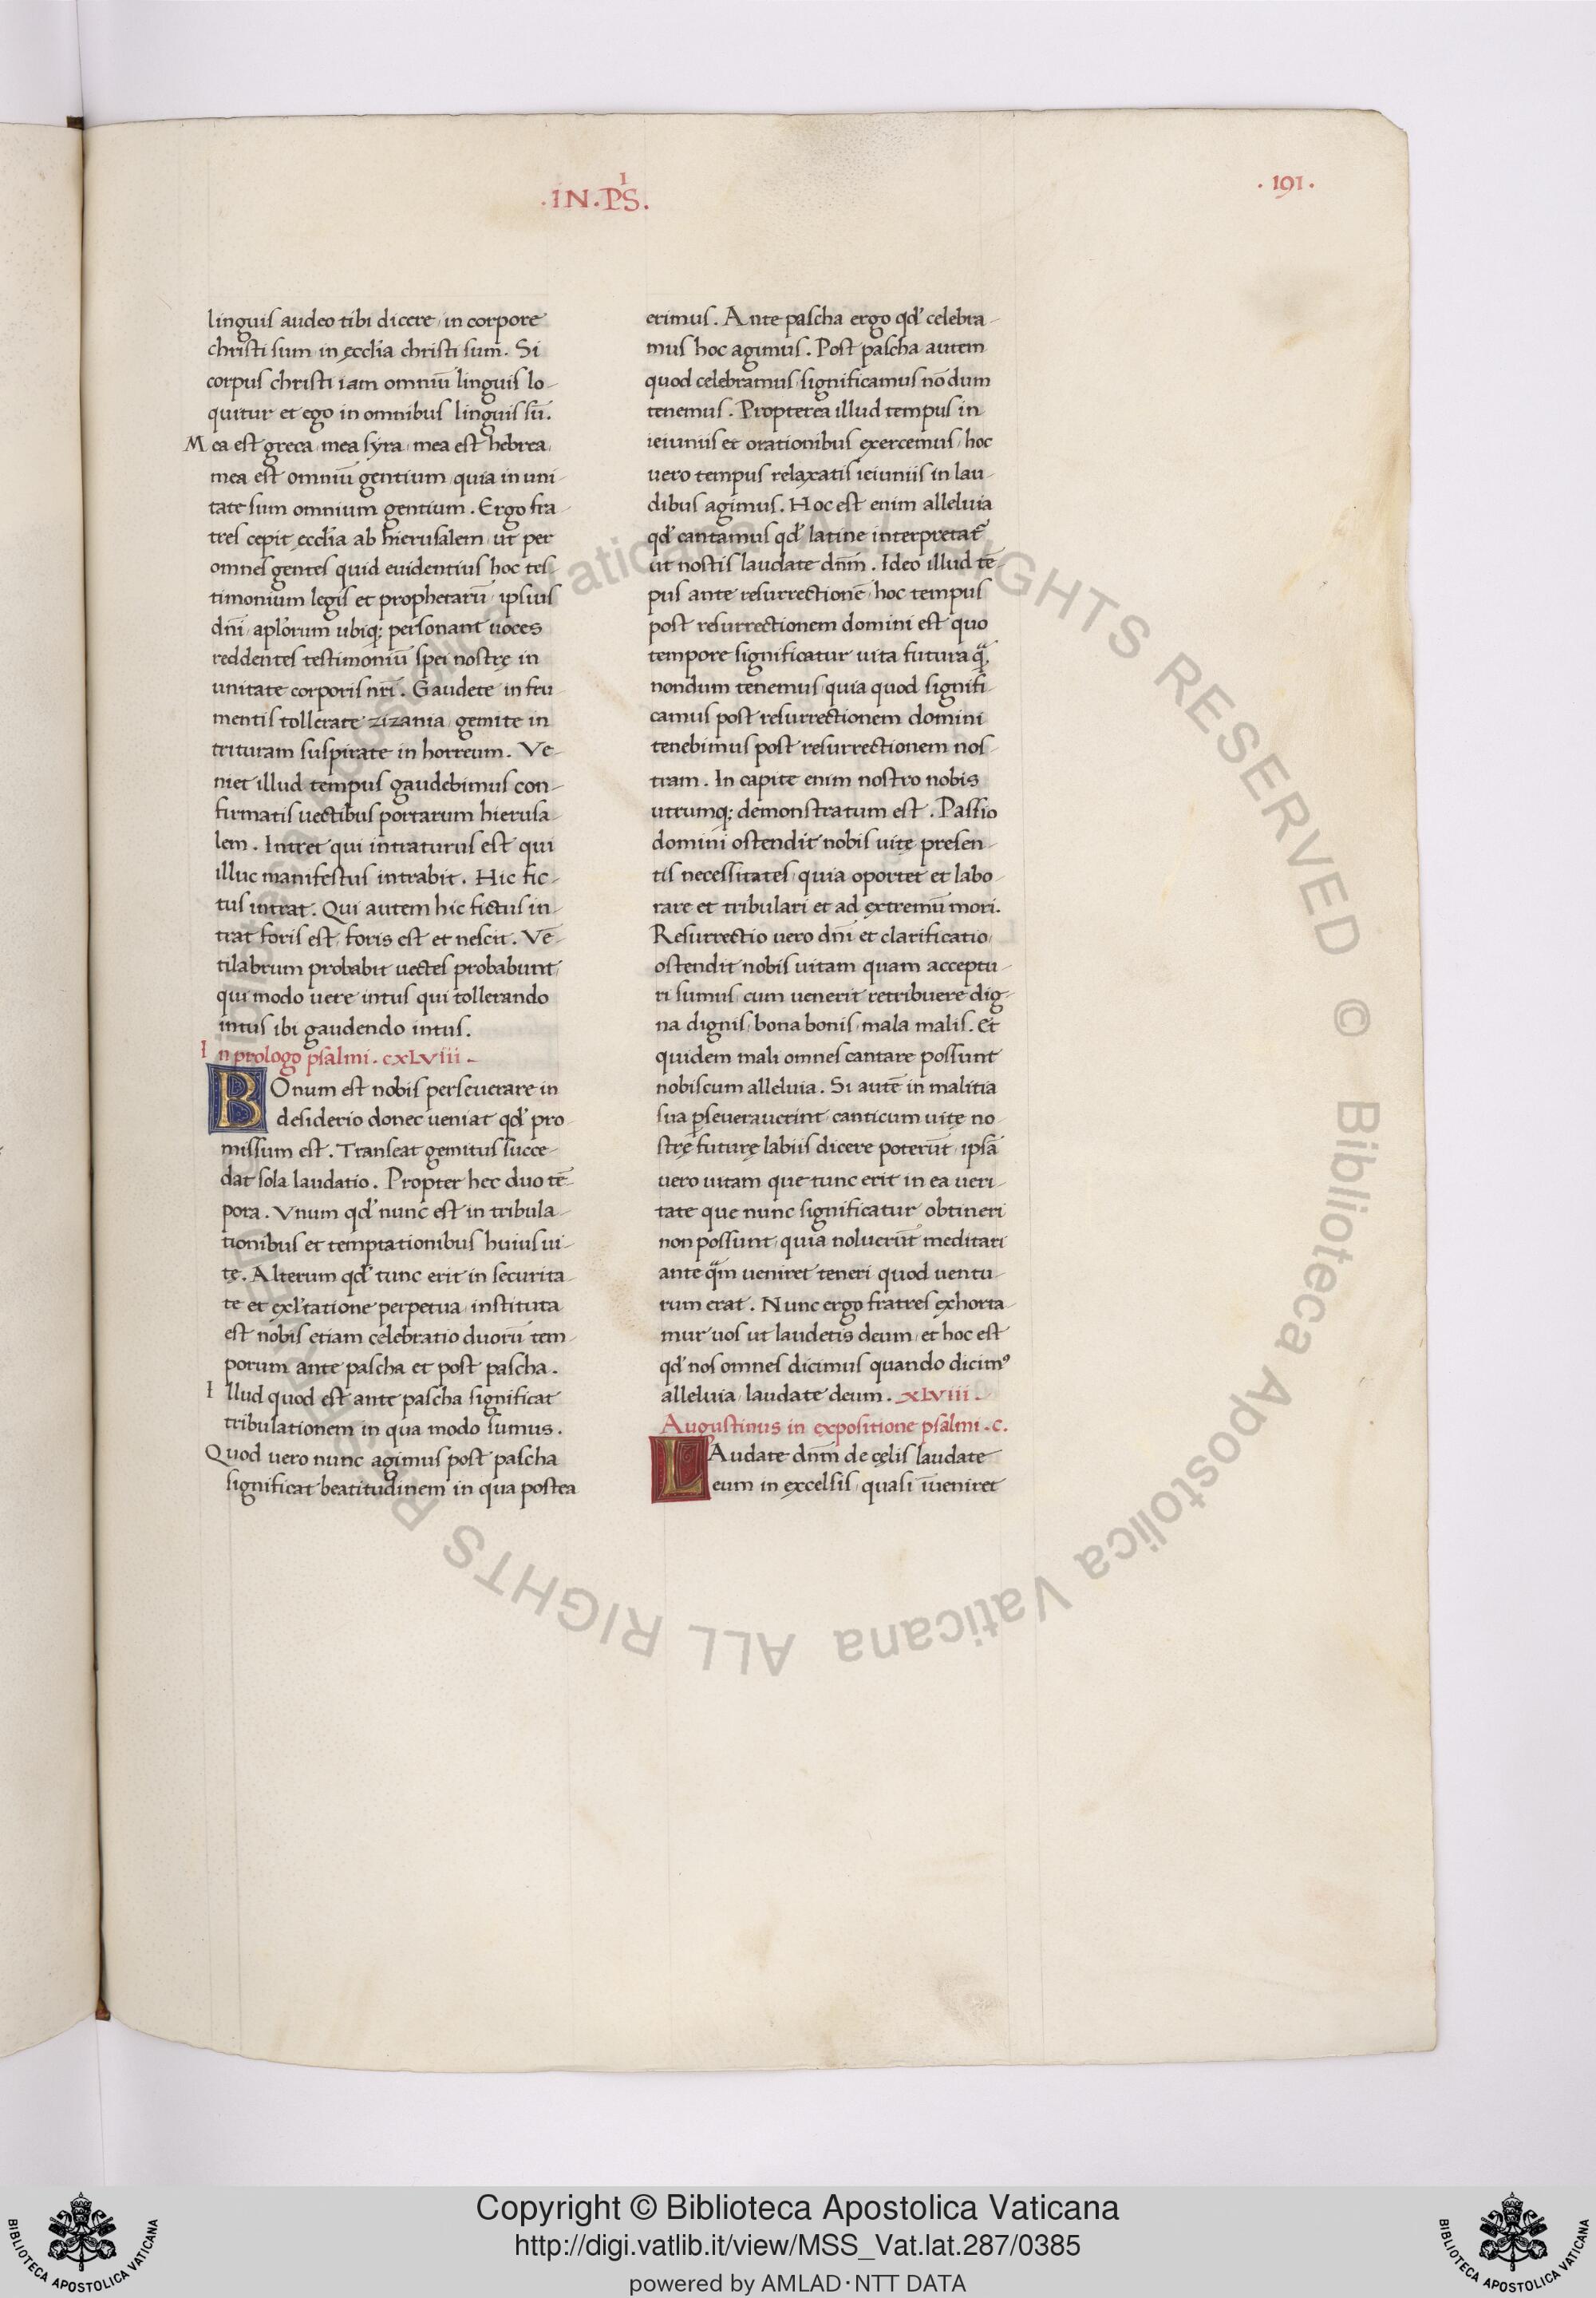 .IN.PS̄.
. 191 .
linguis audeo tibi dicere, in corpore
christi sum, in ęccl̄ia christi sum̄. Si
corpus christi iam omniū linguis lo-
quitur et ego in omnibus linguis sū.
Mea est greca, mea syra, mea est hebrea,
mea est omniū gentium, quia in uni-
tate sum omnium gentium. Ergo fra-
tres cepit ęccl̄ia ab hierusalem, ut per
omnes gentes quid euidentius hoc tes-
timonium legis et prophetarū, ipsius
dn̄i, apl̄orum ubiq; personant uoces
reddentes testimoniū spei nostrę in
unitate corporis nr̄i. Gaudete in fru-
mentis tollerate zizania, gemite in
trituram suspirate in horreum. Ve-
niet illud tempus gaudebimus con-
firmatis uectibus portarum hierusa-
lem. Intret qui intraturus est qui
illuc manifestus intrabit. Hic fic-
tus intrat. Qui autem hic fictus in-
trat foris est, foris est et nescit. Vē-
tilabrum probabit uectes probabunt,
qui modo uere intus qui tollerando
intus ibi gaudendo intus.
In prologo psalmi. cxLviii -
BOnum est nobis perseuerare in
desiderio donec ueniat qd' pro-
missum est. Transeat gemitus succe-
dat sola laudatio. Propter hec duo tē-
pora. Vnum qd' nunc est in tribula-
tionibus et temptationibus huius ui-
tę. Alterum qd' tunc erit in securita-
te et exl'tatione perpetua, instituta
est nobis etiam celebratio duorū tem-
porum ante pascha et post pascha.
Illud quod est ante pascha significat
tribulationem in qua modo sumus.
Quod uero nunc agimus post pascha
significat beatitudinem in qua postea
erimus. Ante pascha ergo qd' celebra-
mus hoc agimus. Post pascha autem
quod celebramus, significamus nōdum
tenemus. Propterea illud tempus in
ieiuniis et orationibus exercemus, hoc
uero tempus relaxatis ieiuniis in lau-
dibus agimus. Hoc est enim alleluia
qd' cantamus qd' latine interpretat̄
ut nostis laudate dn̄m. Ideo illud tē-
pus ante resurrectionē, hoc tempus
post resurrectionem domini est quo
tempore significatur uita futura qª,
nondum tenemus, quia quod signifi-
camus post resurrectionem domini
tenebimus post resurrectionem nos-
tram. In capite enim nostro nobis
utrumq; demonstratum est. Passio
domini ostendit nobis uitę presen-
tis necessitates, quia oportet et labo-
rare et tribulari et ad extremū mori.
Resurrectio uero dn̄i et clarificatio,
ostendit nobis uitam quam acceptu-
ri sumus, cum uenerit retribuere dig-
na dignis, bona bonis, mala malis. Et
quidem mali omnes cantare possunt
nobiscum alleluia. Si autē in malitia
sua ꝑseuerauerint, canticum uitę no-
strę futurę labiis dicere poterūt, ipsā
uero uitam que tunc erit in ea ueri-
tate que nunc significatur obtineri
non possunt, quia noluerūt meditari
ante qªm ueniret teneri quod uentu-
rum erat. Nunc ergo fratres exhorta-
mur uos ut laudetis deum, et hoc est
qd' nos omnes dicimus quando dicimꝰ
alleluia, laudate deum. xLviii.
Augustinus in expositione psalmi.c.
LAudate dn̄m de cęlis laudate
eum in excelsis, quasi īueniret
Copyright © Biblioteca Apostolica Vaticana
http://digi.vatlib.it/view/MSS_Vat.lat.287/0385
powered by AMLAD·NTT DATA
BIBLIOTECA APOSTOLICA VATICANA
BIBLIOTECA APOSTOLICA VATICANA